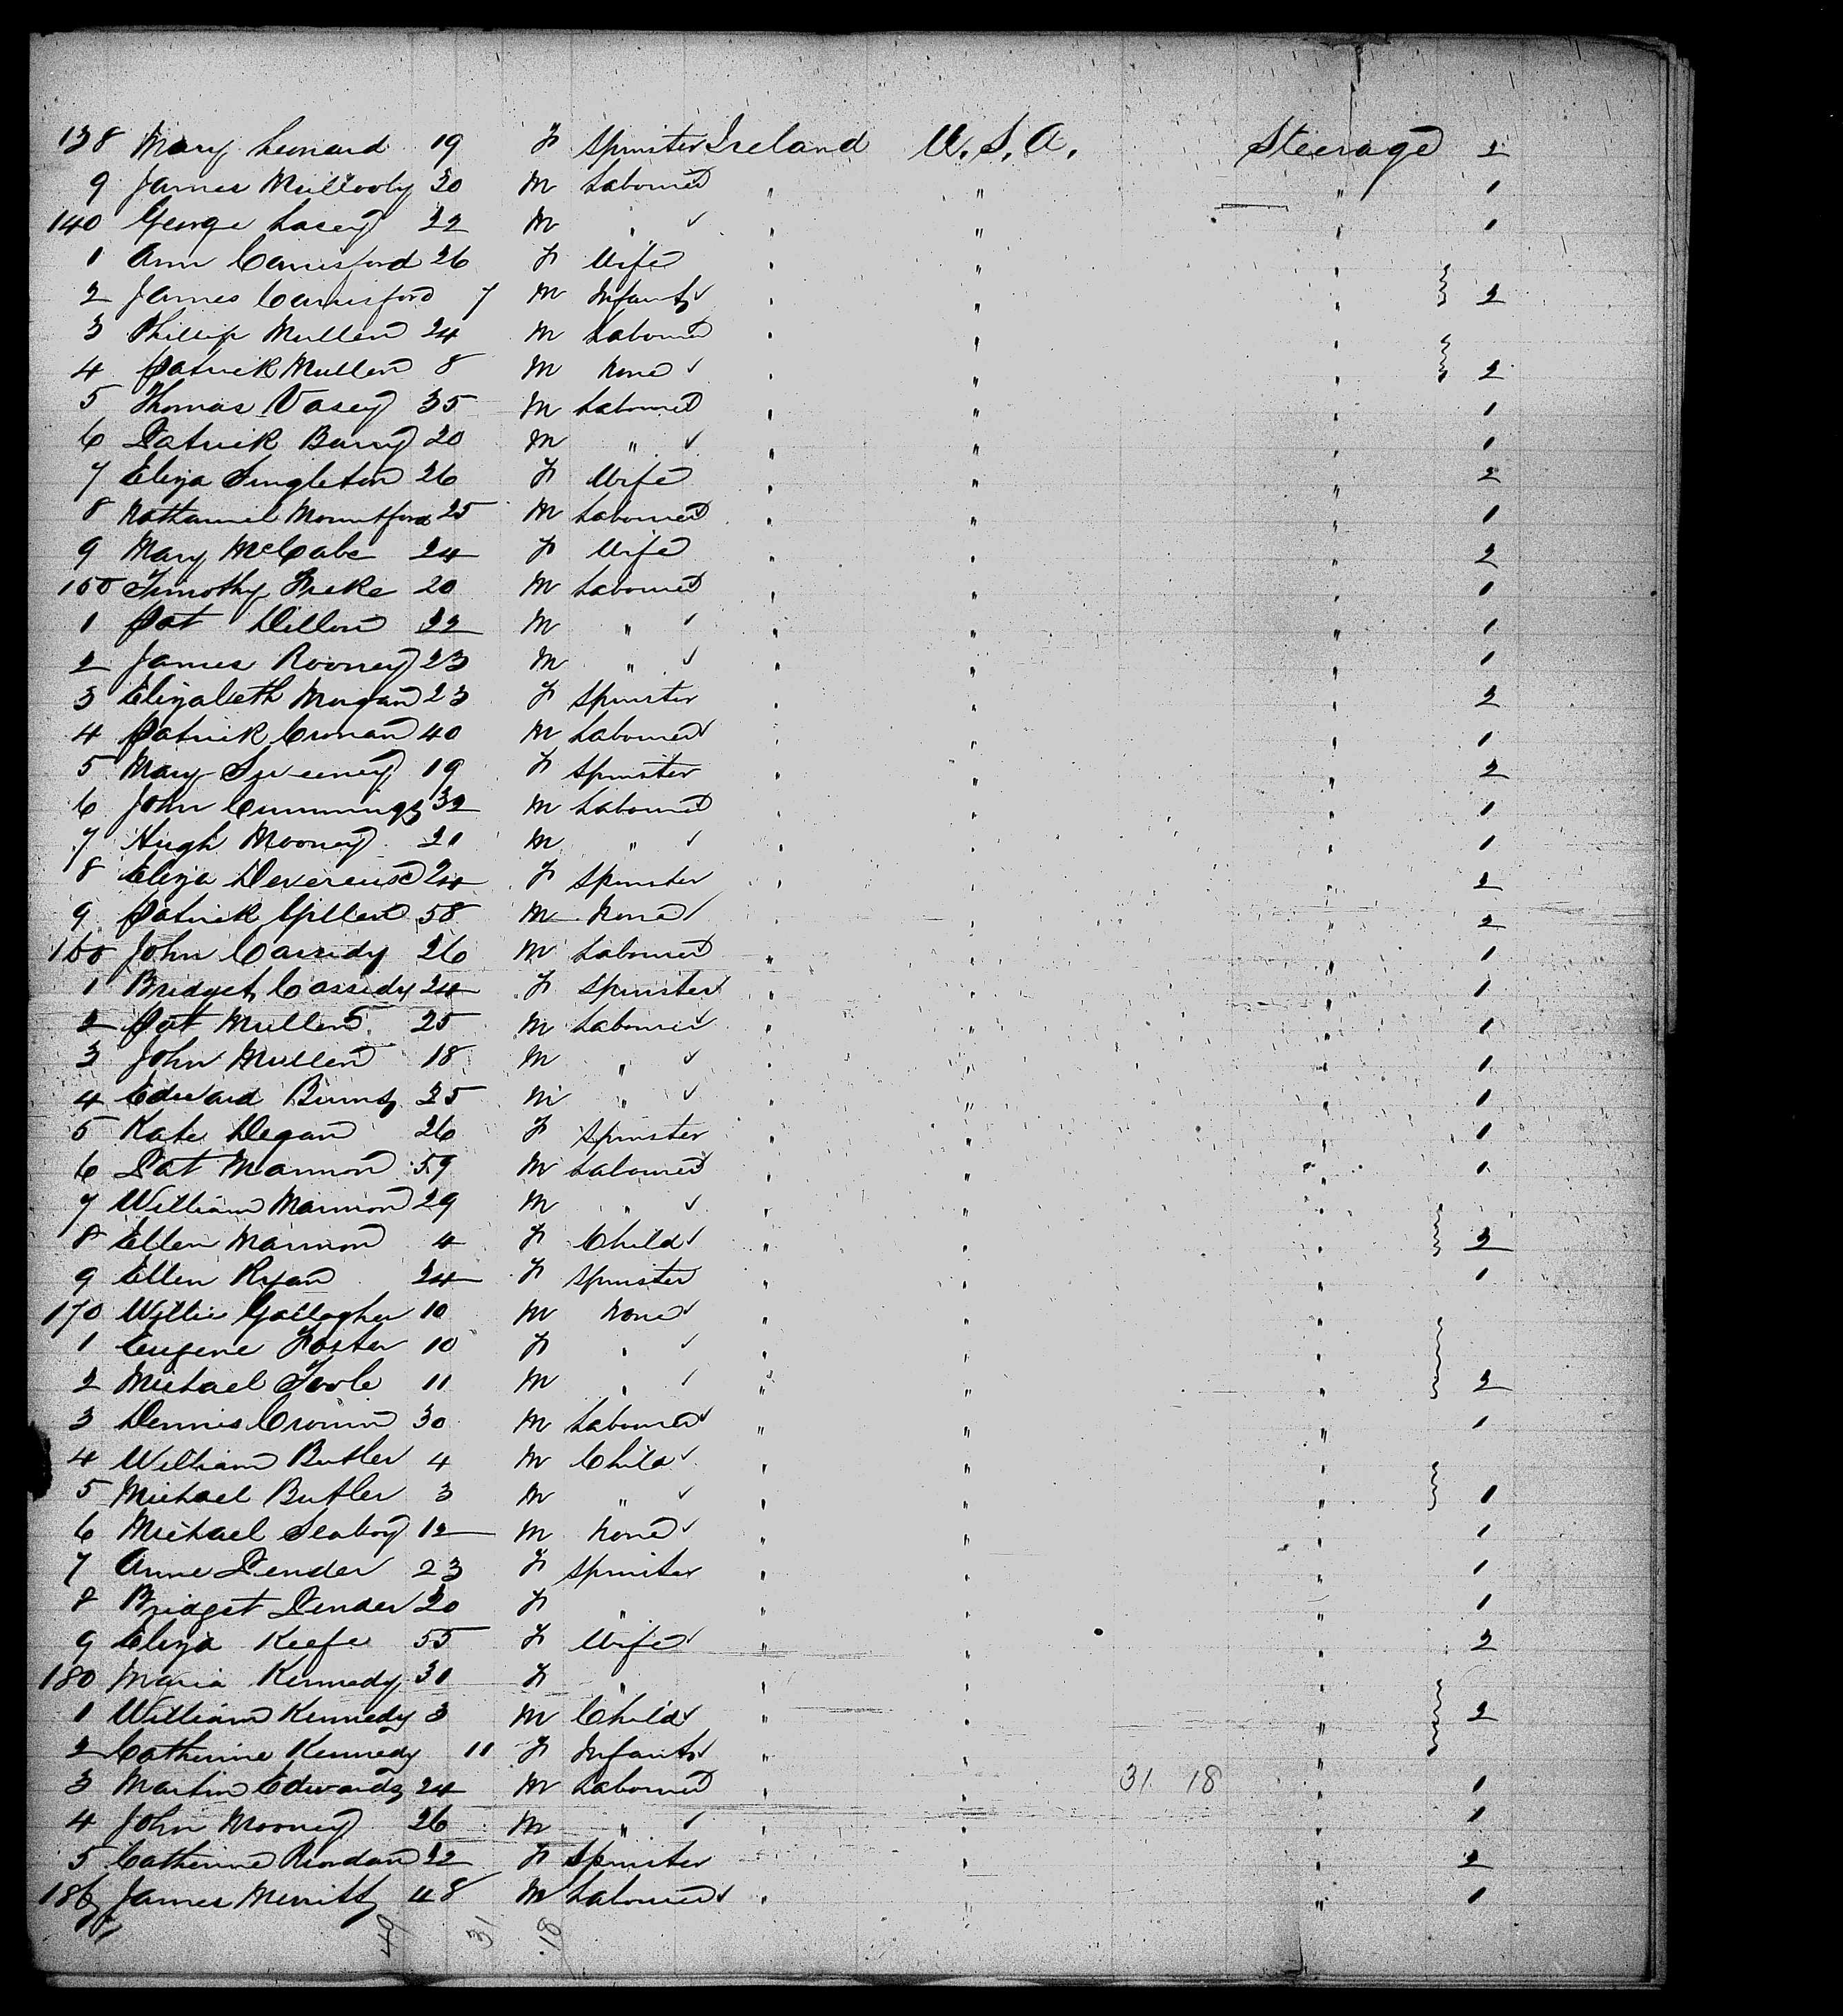 138 Mary Leonard 19 F Spinster Ireland U.S.A. Steerage 2
9 James Mullooly 30 M Labourer " " " 1
140 George Lacey 22 M " " " " 1
1 Ann Carrisford 26 F Wife " " "
2 James Carrisford 7 M Infant " " " 2
3 Phillip Mullen 24 M Labourer " " "
4 Patrick Mullen 8 M None " " " 2
5 Thomas Vasey 35 M Labourer " " " 1
6 Patrick Barry 20 M " " " " 1
7 Eliza Singleton 26 F Wife " " " 2
8 Nathaniel Mountford 25 M Labourer " " " 1
9 Mary McCabe 24 F Wife " " " 2
150 Timothy Freke 20 M Labourer " " " 1
1 Pat Dillon 22 M " " " " 1
2 James Rooney 23 M " " " " 1
3 Elizabeth Morgan 23 F Spinster " " " 2
4 Patrick Cronan 40 M Labourer " " " 1
5 Mary Sweeney 19 F Spinster " " " 2
6 John Cummings 32 M Labourer " " " 1
7 Hugh Mooney 21 M " " " " 1
8 Eliza Devereux 24 F Spinster " " " 2
9 Patrick 58 M None " " " 2
160 John Cassidy 26 M Labourer " " " 1
1 Bridget Cassidy 24 F Spinster " " " 1
2 Pat Mullen 25 M Labourer " " " 1
3 John Mullen 18 M " " " " 1
4 Edward Burns 25 M " " " " 1
5 Kate Degan 26 F Spinster " " " 1
6 Pat Mannon 59 M Labourer " " " 1
7 William Mannon 29 M " " " "
8 Ellen Mannon 4 F Child " " " 2
9 Ellen Ryan 24 F Spinster " " " 1
170 Willie Gallagher 10 M None " " "
1 Eugene Foster 10 F " " " "
2 Michael Toole 11 M " " " " 2
3 Dennis Cronin 30 M Labourer " " " 1
4 William Butler 4 M Child " " "
5 Michael Butler 3 M " " " " 1
6 Michael Leahy 12 M None " " " 1
7 Anne Pender 23 F Spinster " " " 1
8 Bridget Pender 20 F " " " " 1
9 Eliza Keefe 55 F Wife " " " 2
180 Maria Kennedy 31 F " " " "
1 William Kennedy 3 M Child " " " 2
2 Catherine Kennedy 11 F Infant " " "
3 Martin Edwards 24 M Labourer " " 31 18 " 1
4 John Mooney 26 M " " " " 1
5 Catherine Riordan 22 F Spinster " " " 2
186 James Merritt 48 M Labourer " " " 1
49 31 18